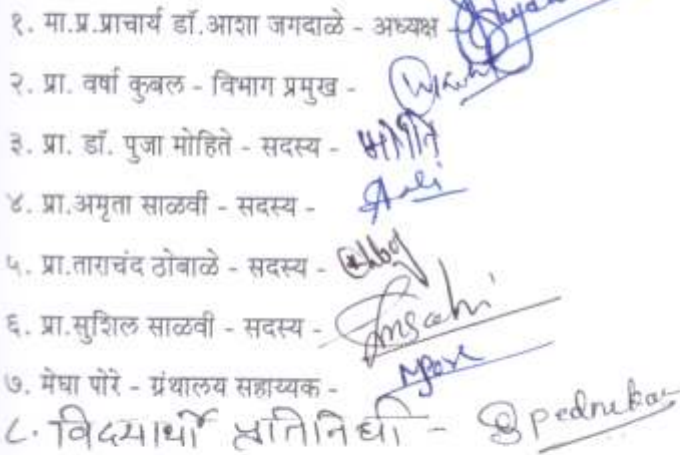 १. मा.प्र.प्राचार्य डॉ.आशा जगदाळे - अध्यक्ष -
२. प्रा. वर्षा कुबल - विभाग प्रमुख -
३. प्रा. डॉ. पुजा मोहिते - सदस्य - मोहिते
४. प्रा.अमृता साळवी - सदस्य -
५. प्रा.ताराचंद ठोबाळे - सदस्य -
६. प्रा.सुशिल साळवी - सदस्य -
७. मेघा पोरे - ग्रंथालय सहाय्यक - Mpore
८. विद्यार्थी प्रतिनिधी - Spednekar